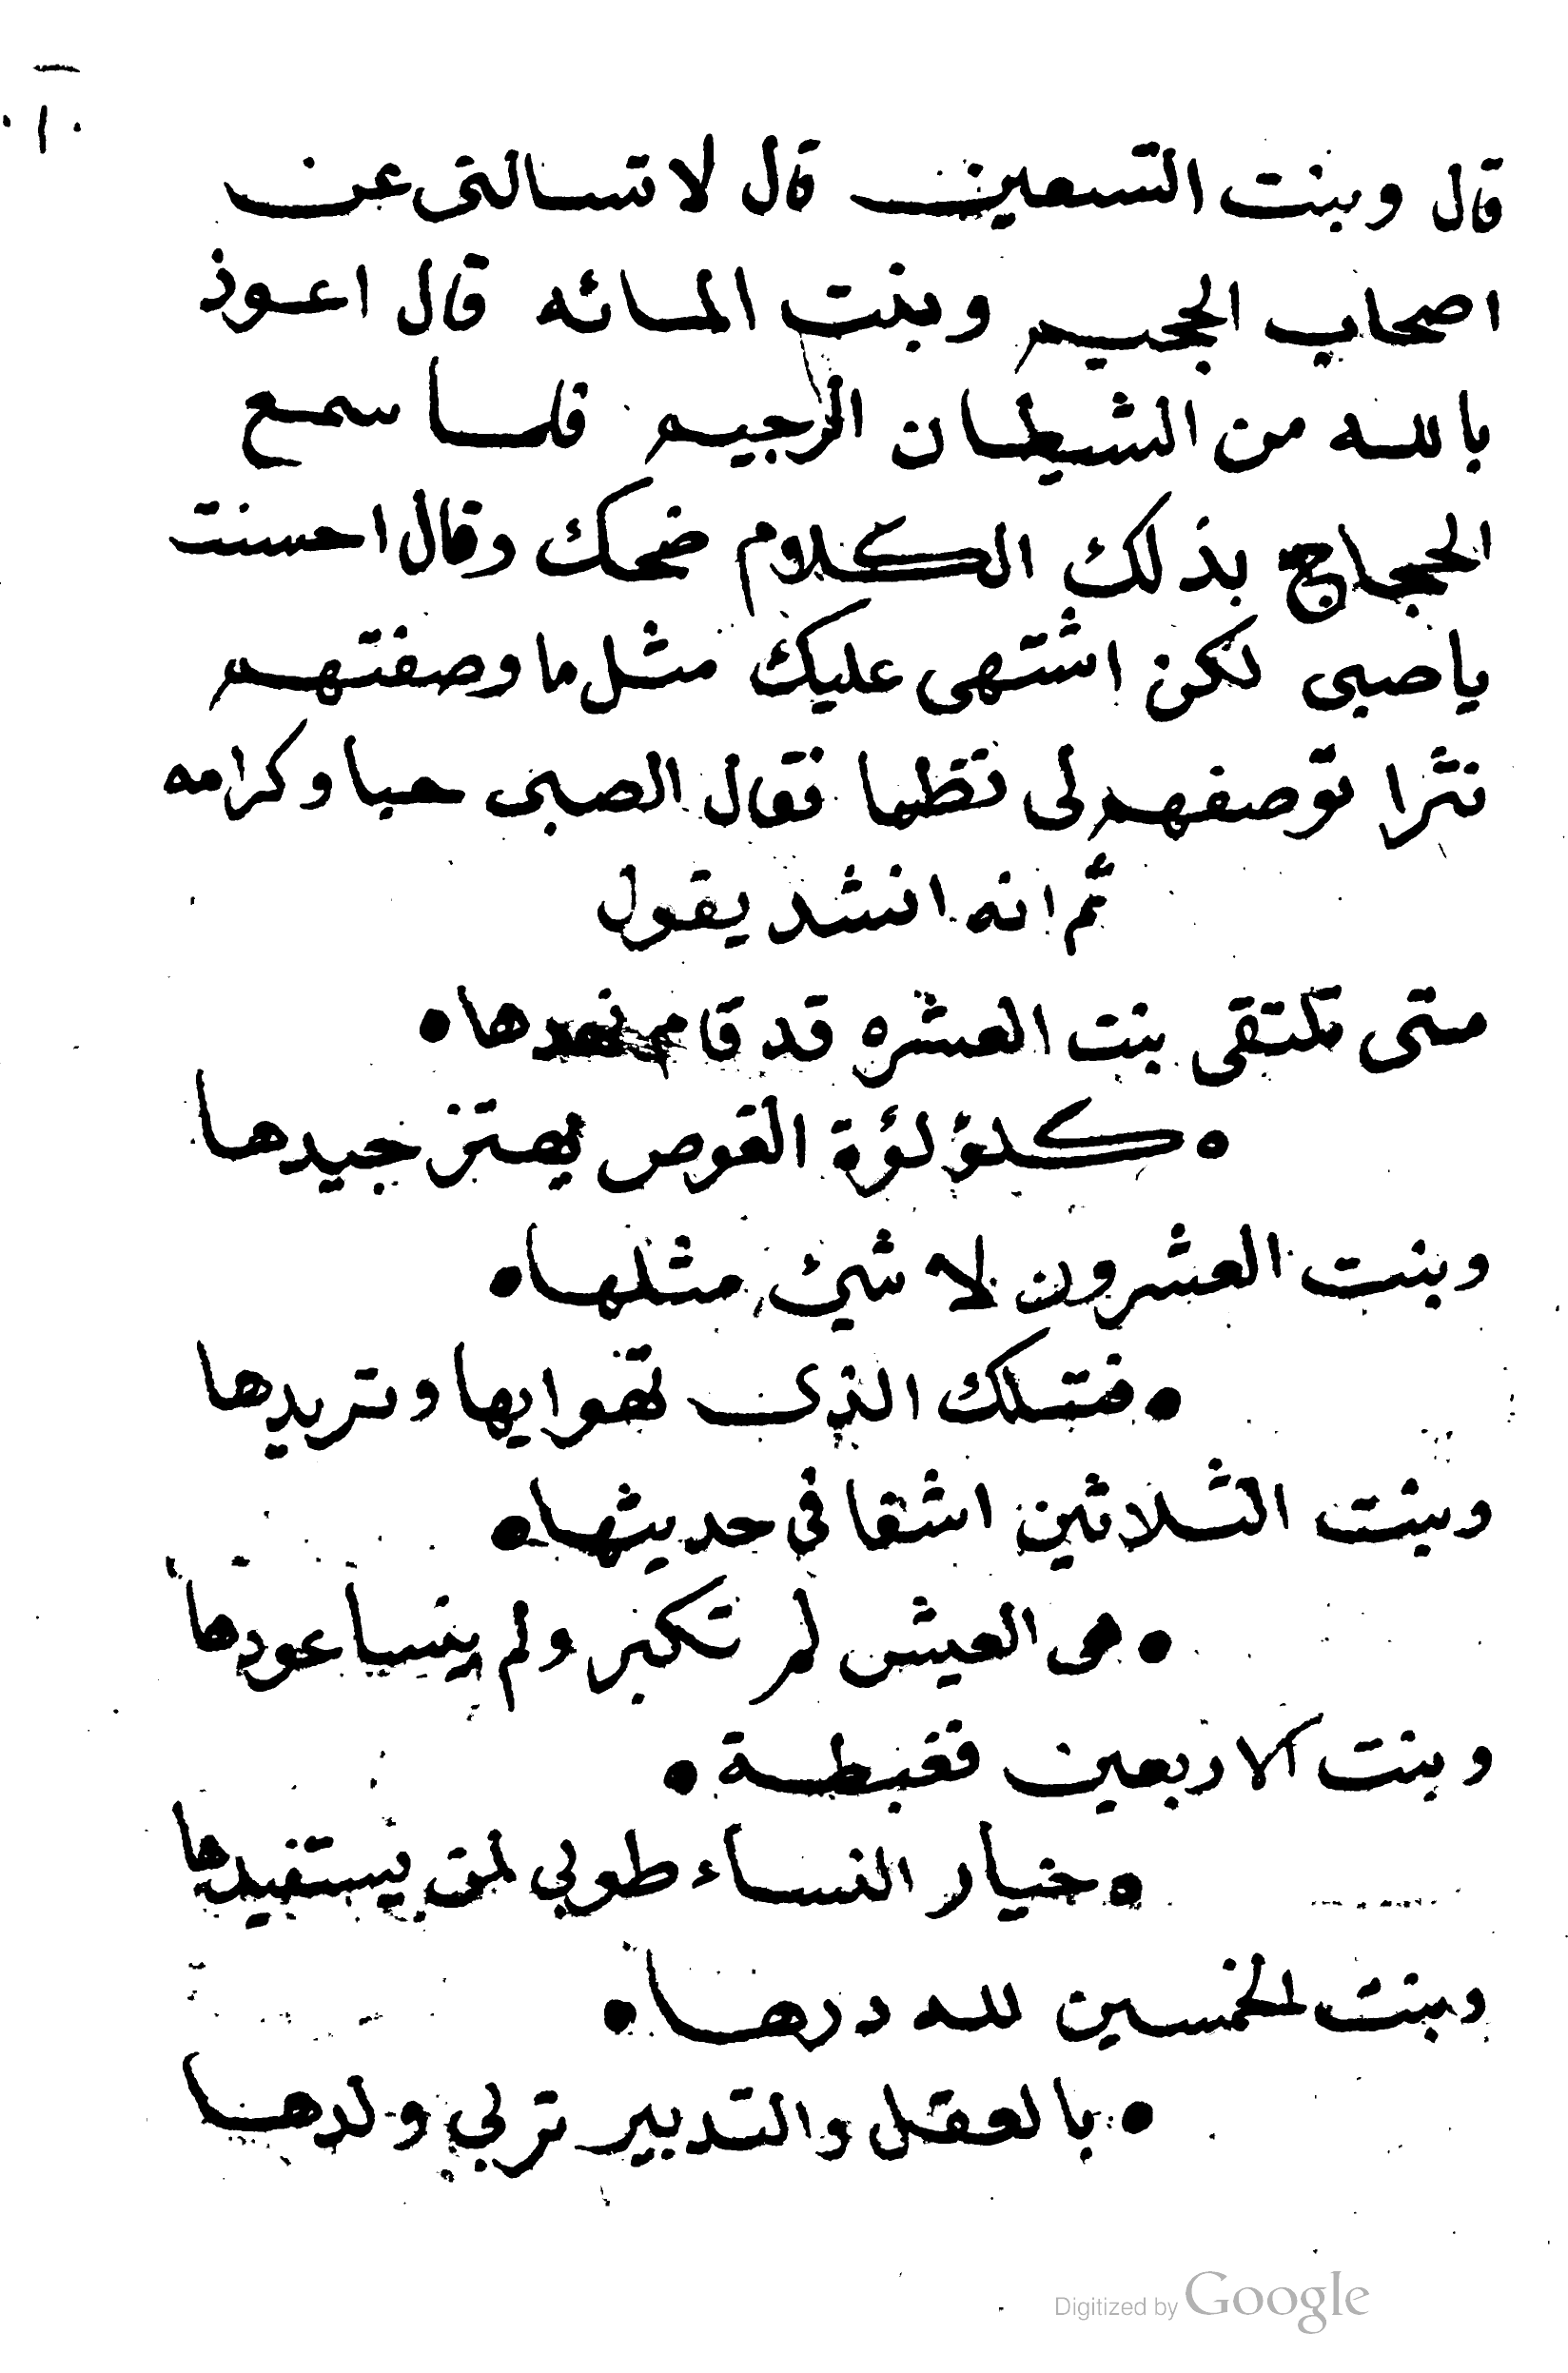 ١٠
قال وبنت التسعين قال لا تسالنى عن
اصحاب الجحيم وبنت المائه قال اعوذ
بالله من الشيطان الرجيم فلما سمع
الحجاج بذلك الكلام ضحك وقال احسنت
يا صبى لكن اشتهى عليك مثل ما وصفتهم
نثرا توصفهم لى نظما فقال الصبى حبا وكرامه
ثم انه انشد يقول
متى تلتقى بنت العشره قد قام نهدها
كلؤلؤة الغوص يهتز جيدها
وبنت العشرون لا شئ مثلها
فتلك الذى تهوايها وتريدها
وبنت الثلاثين اشفا فى حديثها
هى العيش لم تكبر ولم ينسا عودها
وبنت الاربعين فغبطة
خيار النساء طوبى لمن يستفيدها
وبنت الخمسين لله درها
بالعقل والتدبير تربي ولدها
Digitized by Google